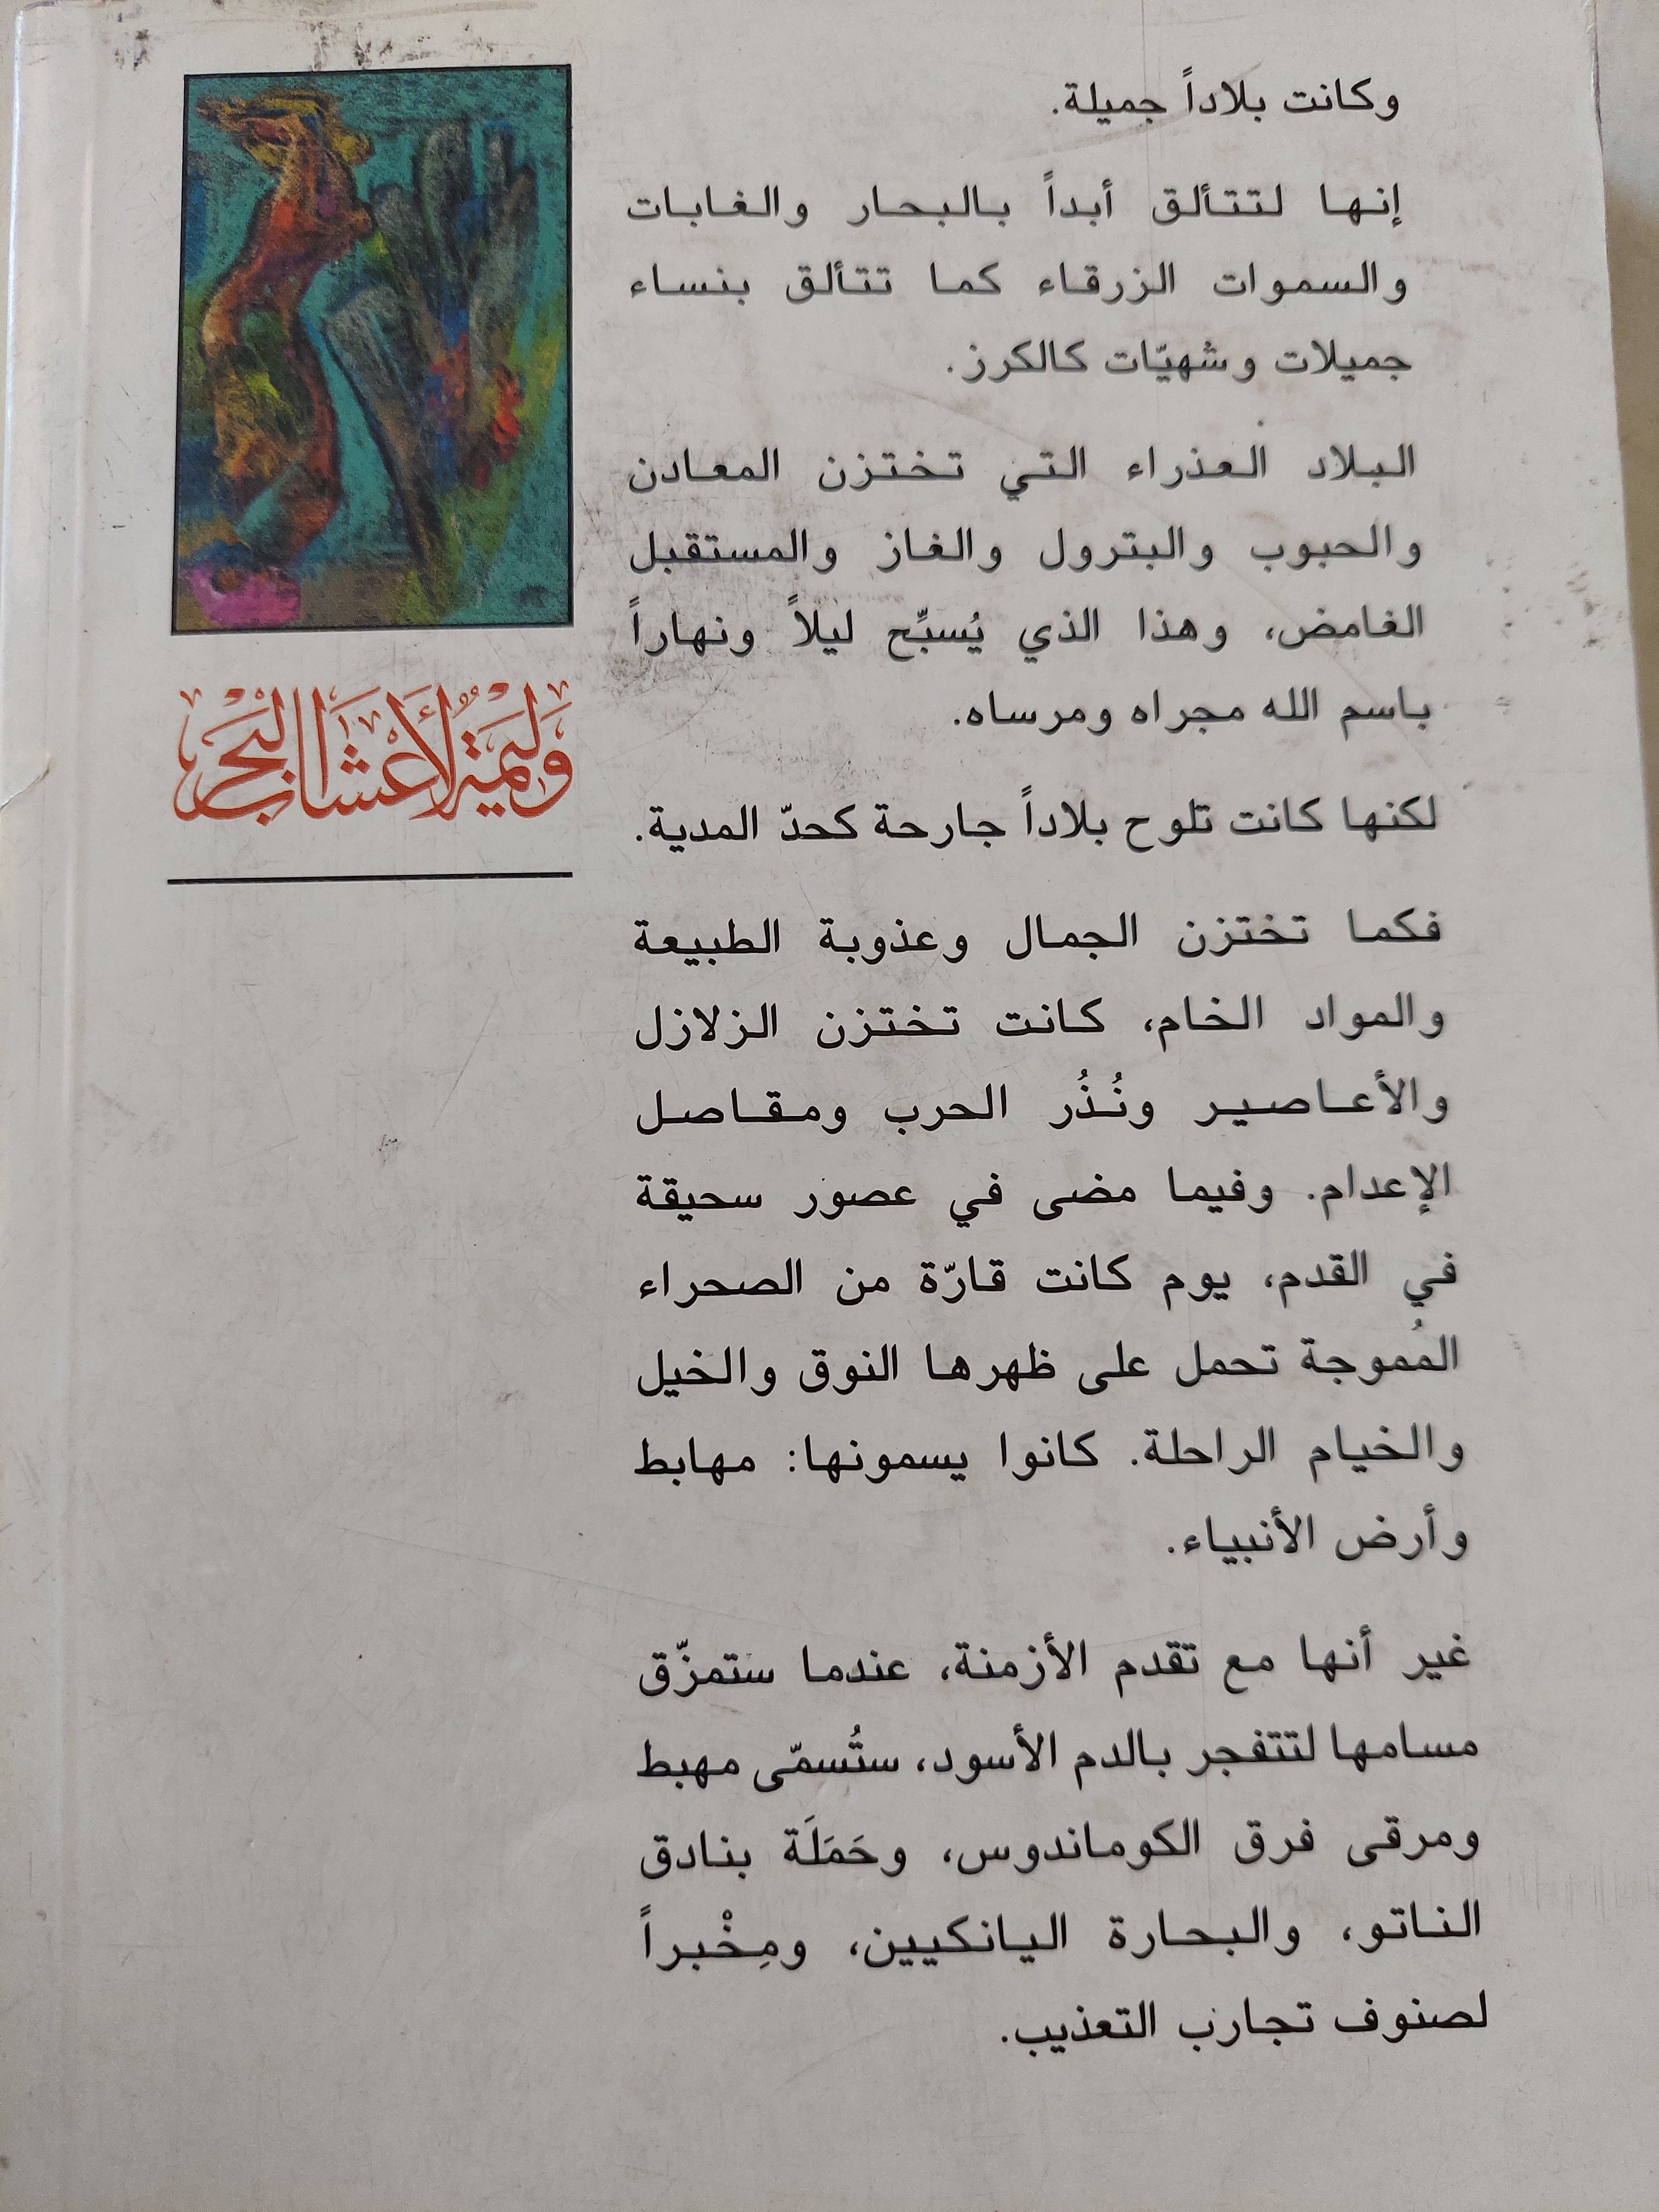 وكانت بلاداً جميلة.
إنها لتتألق أبداً بالبحار والغابات
والسموات الزرقاء كما تتألق بنساء
جميلات وشهيّات كالكرز.
البلاد العذراء التي تختزن المعادن
والحبوب والبترول والغاز والمستقبل
الغامض، وهذا الذي يُسبِّح ليلاً ونهاراً
باسم الله مجراه ومرساه.
لكنها كانت تلوح بلاداً جارحة كحدّ المدية.
فكما تختزن الجمال وعذوبة الطبيعة
والمواد الخام، كانت تختزن الزلازل
والأعاصير ونُذُر الحرب ومقاصل
الإعدام. وفيما مضى في عصور سحيقة
في القدم، يوم كانت قارّة من الصحراء
المُموجة تحمل على ظهرها النوق والخيل
والخيام الراحلة. كانوا يسمونها: مهابط
وأرض الأنبياء.
غير أنها مع تقدم الأزمنة، عندما ستمزّق
مسامها لتتفجر بالدم الأسود، ستُسمّى مهبط
ومرقى فرق الكوماندوس، وحَمَلَة بنادق
الناتو، والبحارة اليانكيين، ومِخْبراً
لصنوف تجارب التعذيب.
وَليْمَةٌ لأَعْشَابِ البَحْرِ